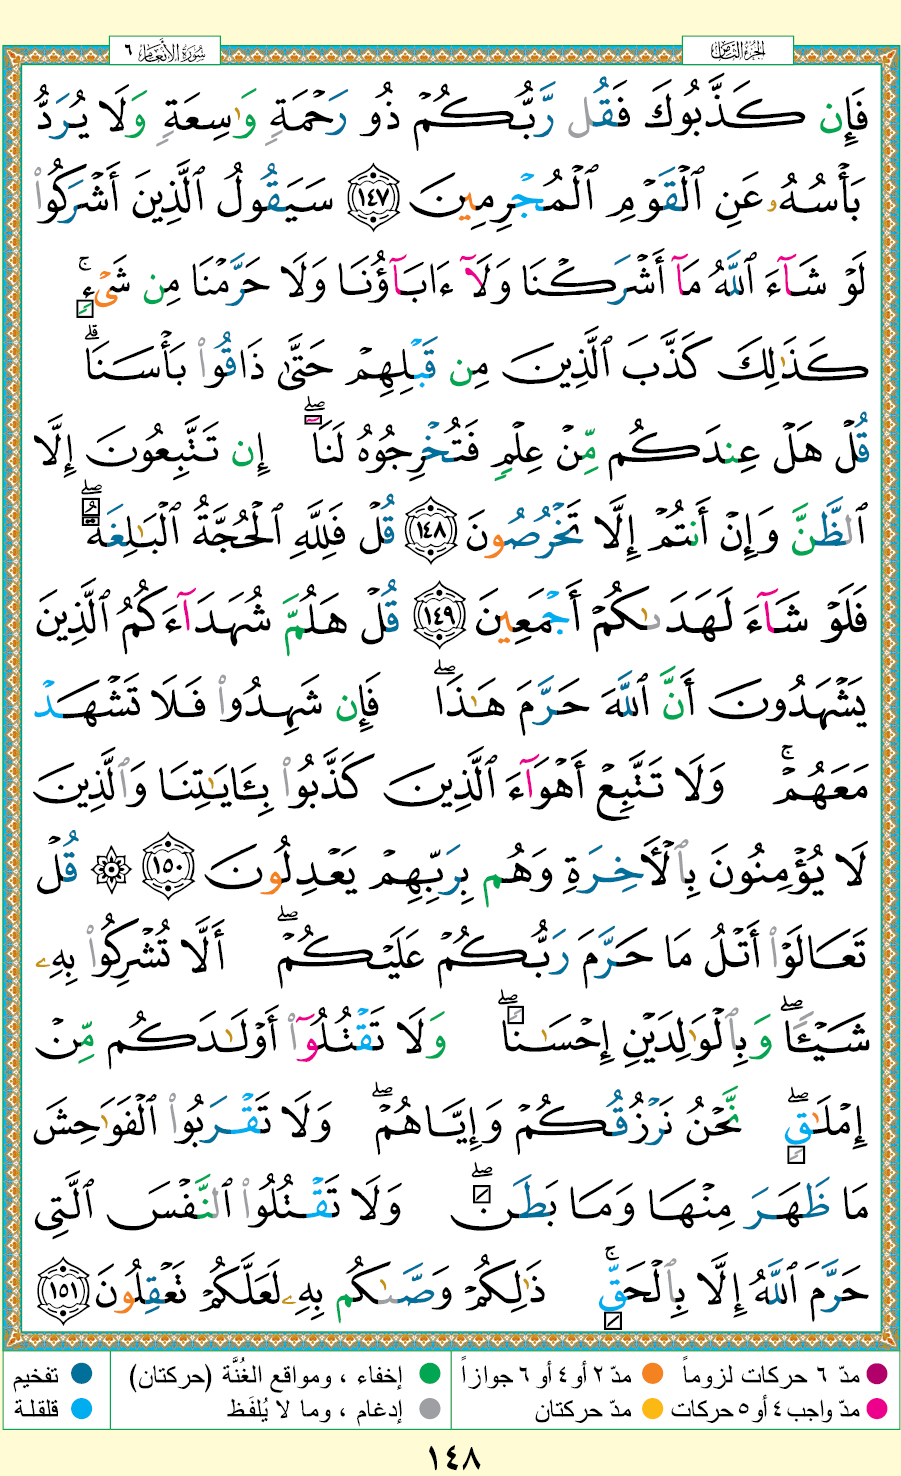 الجزء الثامن
سورة الأنعام ٦
فَإِن كَذَّبُوكَ فَقُل رَّبُّكُمْ ذُو رَحْمَةٍ وَٰسِعَةٍ وَلَا يُرَدُّ
بَأْسُهُۥ عَنِ ٱلْقَوْمِ ٱلْمُجْرِمِينَ ١٤٧ سَيَقُولُ ٱلَّذِينَ أَشْرَكُوا۟
لَوْ شَآءَ ٱللَّهُ مَآ أَشْرَكْنَا وَلَآ ءَابَآؤُنَا وَلَا حَرَّمْنَا مِن شَىْءٍ ۚ
كَذَٰلِكَ كَذَّبَ ٱلَّذِينَ مِن قَبْلِهِمْ حَتَّىٰ ذَاقُوا۟ بَأْسَنَا ۗ
قُلْ هَلْ عِندَكُم مِّنْ عِلْمٍ فَتُخْرِجُوهُ لَنَآ ۖ إِن تَتَّبِعُونَ إِلَّا
ٱلظَّنَّ وَإِنْ أَنتُمْ إِلَّا تَخْرُصُونَ ١٤٨ قُلْ فَلِلَّهِ ٱلْحُجَّةُ ٱلْبَٰلِغَةُ ۖ
فَلَوْ شَآءَ لَهَدَىٰكُمْ أَجْمَعِينَ ١٤٩ قُلْ هَلُمَّ شُهَدَآءَكُمُ ٱلَّذِينَ
يَشْهَدُونَ أَنَّ ٱللَّهَ حَرَّمَ هَٰذَا ۖ فَإِن شَهِدُوا۟ فَلَا تَشْهَدْ
مَعَهُمْ ۚ وَلَا تَتَّبِعْ أَهْوَآءَ ٱلَّذِينَ كَذَّبُوا۟ بِـَٔايَٰتِنَا وَٱلَّذِينَ
لَا يُؤْمِنُونَ بِٱلْـَٔاخِرَةِ وَهُم بِرَبِّهِمْ يَعْدِلُونَ ١٥٠ ۞ قُلْ
تَعَالَوْا۟ أَتْلُ مَا حَرَّمَ رَبُّكُمْ عَلَيْكُمْ ۖ أَلَّا تُشْرِكُوا۟ بِهِۦ
شَيْـًٔا ۖ وَبِٱلْوَٰلِدَيْنِ إِحْسَٰنًا ۖ وَلَا تَقْتُلُوٓا۟ أَوْلَٰدَكُم مِّنْ
إِمْلَٰقٍ ۖ نَّحْنُ نَرْزُقُكُمْ وَإِيَّاهُمْ ۖ وَلَا تَقْرَبُوا۟ ٱلْفَوَٰحِشَ
مَا ظَهَرَ مِنْهَا وَمَا بَطَنَ ۖ وَلَا تَقْتُلُوا۟ ٱلنَّفْسَ ٱلَّتِى
حَرَّمَ ٱللَّهُ إِلَّا بِٱلْحَقِّ ۚ ذَٰلِكُمْ وَصَّىٰكُم بِهِۦ لَعَلَّكُمْ تَعْقِلُونَ ١٥١
مدّ ٦ حركات لزوماً مدّ ٢ أو ٤ أو ٦ جوازاً إخفاء ، ومواقع الغُنَّة (حركتان) تفخيم
مدّ واجب ٤ أو ٥ حركات مدّ حركتان إدغام ، وما لا يُلفَظ قلقلة
١٤٨